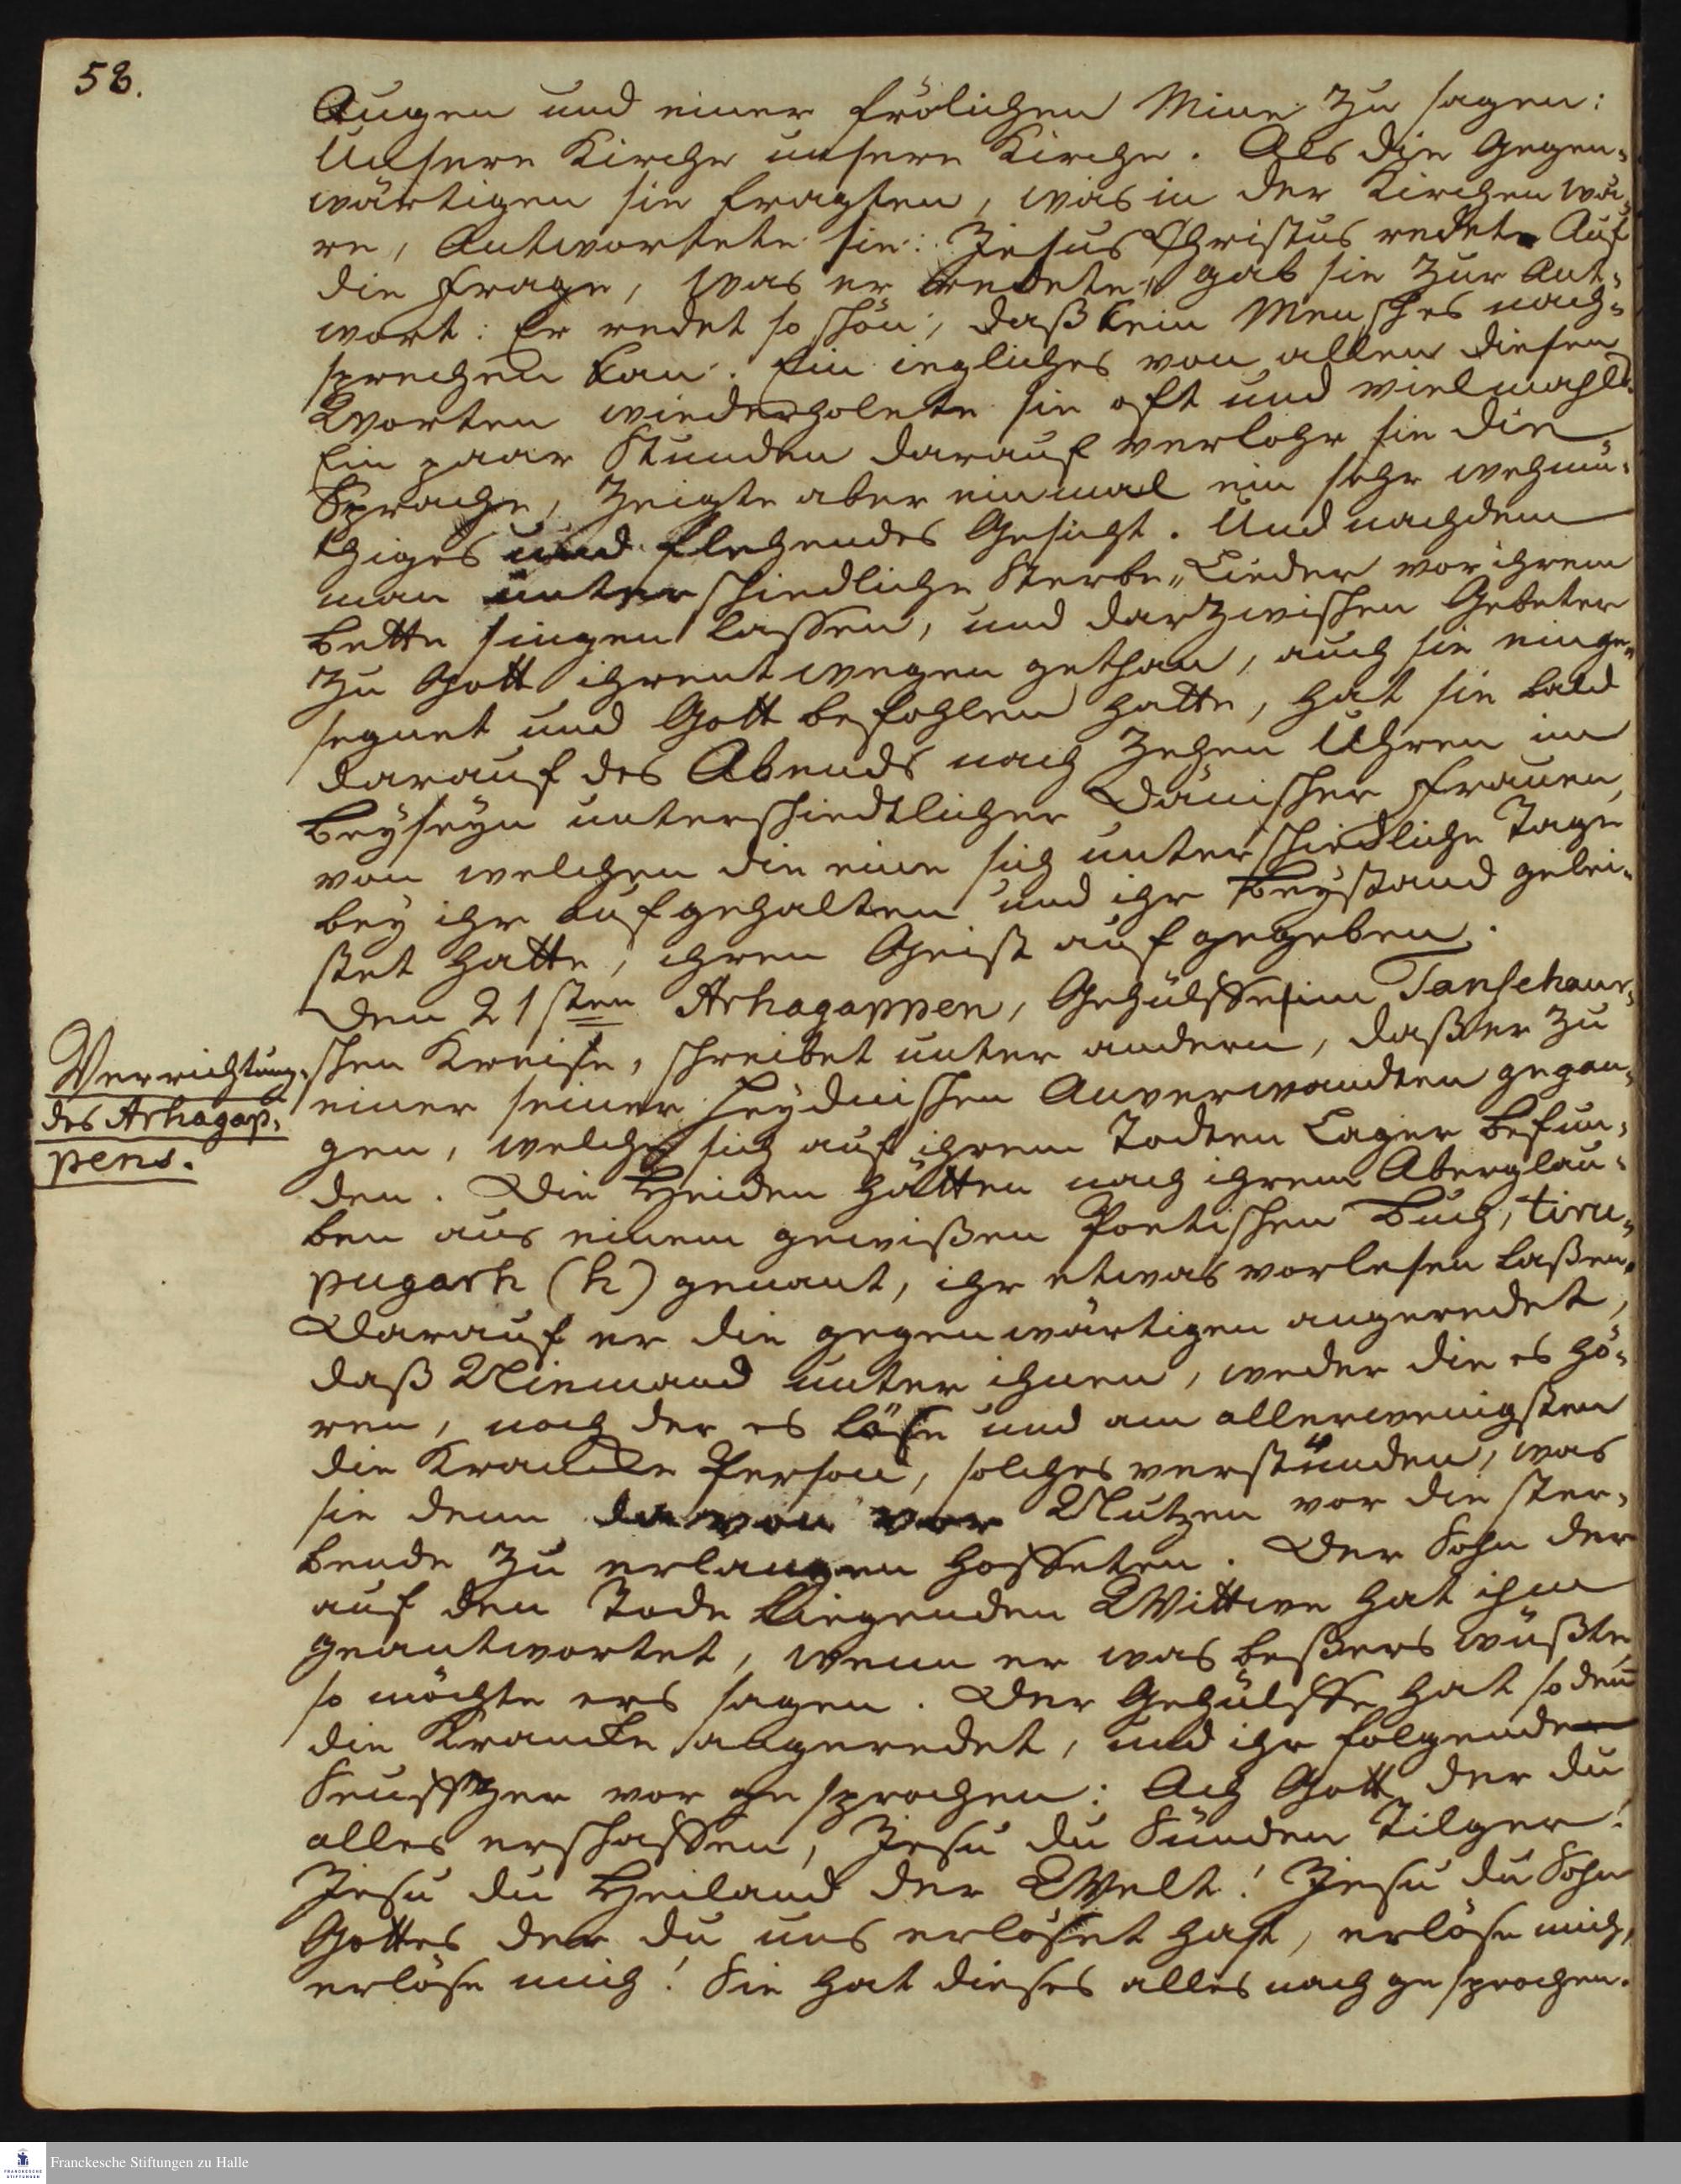 58.
Augen und einer frölichen Mine zu sagen:
Unsere Kirche unsere Kirche. Als die Gegen-
wärtigen sie fragten, was in der Kirchen wä-
re, Antwortete sie: Jesus Christus redet. Auf
die Frage, was er redete, gab sie zur Ant-
wort: Er redet so schön, daß kein Mensch es nach-
sprechen kan. Ein iegliches von allen diesen
Worten wiederholete sie oft und vielmahls.
Ein paar Stunden darauf verlohr sie die
Sprache, zeigte aber einmal ein sehr wehmü-
thiges und flehendes Gesicht. Und nachdem
man unterschiedliche Sterbe-Lieder vor ihrem
Bette singen lassen, und darzwischen Gebeter
zu Gott ihrentwegen gethan, auch sie einge-
segnet und Gott befohlen hatte, hat sie bald
darauf des Abends nach Zehen Uhren im
Beyseyn unterschiedtlicher Dänischer Frauen,
von welchen die eine sich unterschiedliche Tage
bey ihr aufgehalten und ihr Beystand gelei-
stet hatte, ihren Geist aufgegeben.
Den 21sten Arhagappen, Gehülffe im Tanschaur-
schen Kreise, schreibet unter andern, daß er zu
Verrichtung.
des Arhagap-
pens.
einer seiner Heydnischen Anverwandten gegan-
gen, welche sich auf ihrem Todten Lager befun-
den. Die Heiden hätten nach ihrem Aberglau-
ben aus einem gewißen Poetischen Buch, tiru-
pugarh (h) genant, ihr etwas vorlesen laßen.
Darauf er die gegenwärtigen angeredet,
daß Niemand unter ihnen, weder die es hö-
ren, noch der es läse und am allerwenigsten
die Krancke Person, solches verstünden, was
sie denn davon vor Nutzen vor die ster-
bende zu erlangen hoffeten. Der Sohn der
auf den Tode liegenden Wittwe hat ihm
geantwortet, wenn er was beßers wüßte,
so möchte ers sagen. Der Gehülffe hat so den̅
die Krancke angeredet, und ihr folgende
Seuffzer vor gesprochen: Ach Gott der du
alles erschaffen, Jesu du Sünden Tilger!
Jesu du Heiland der Welt! Jesu du Sohn
Gottes der du uns erlöset hast, erlöse mich,
erlöse mich! Sie hat dieses alles nach gesprochen.
Franckesche Stiftungen zu Halle